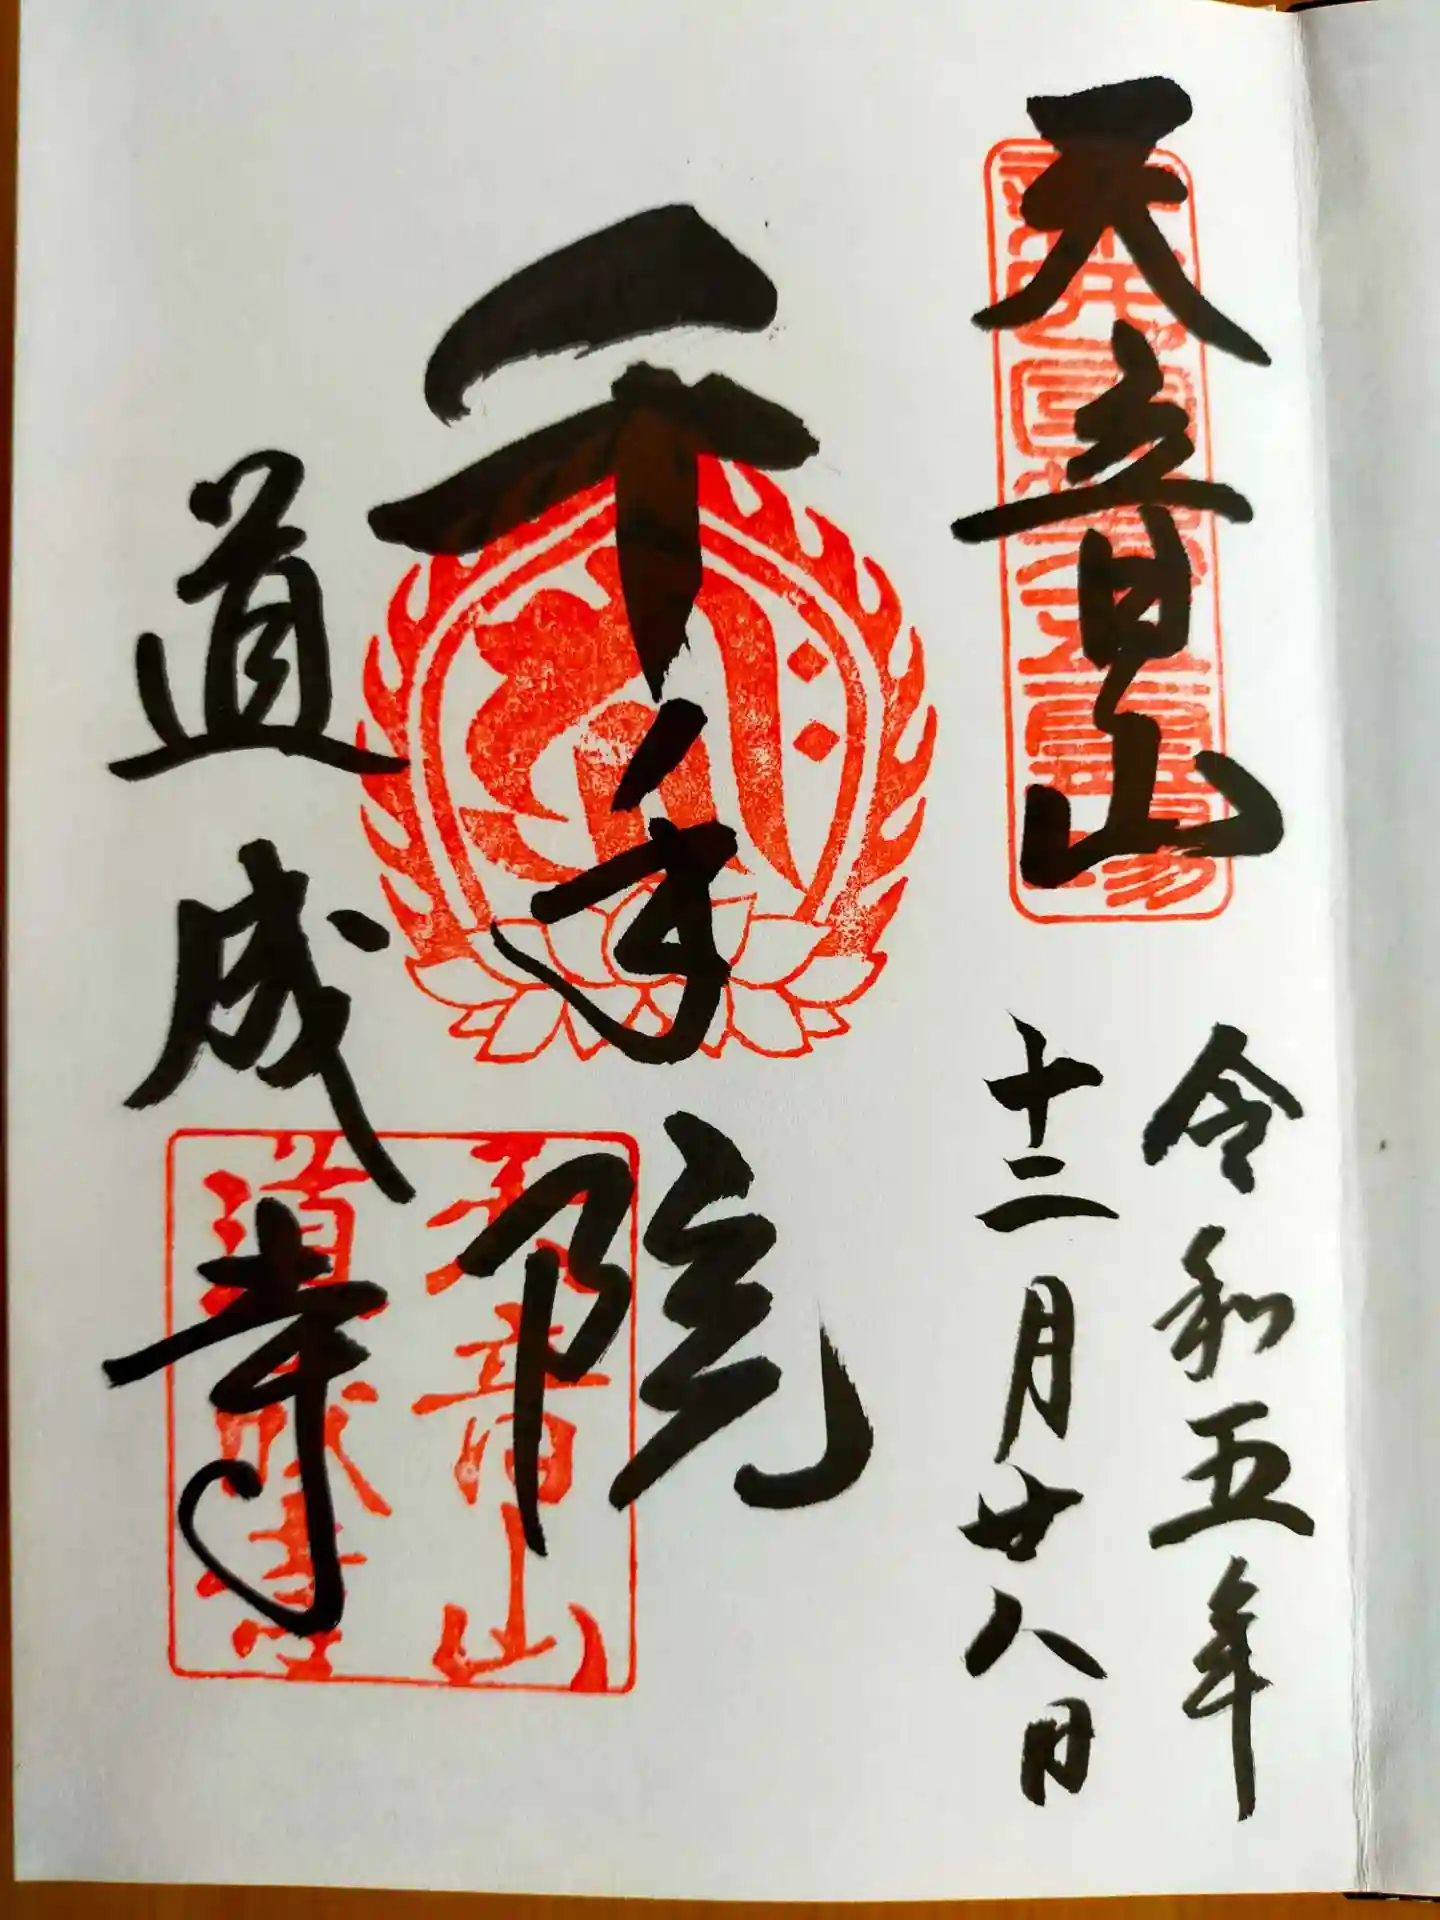 天音山
令和五年
十二月廿八日
千手院
道成寺
西国第五霊場
天音山
道成寺